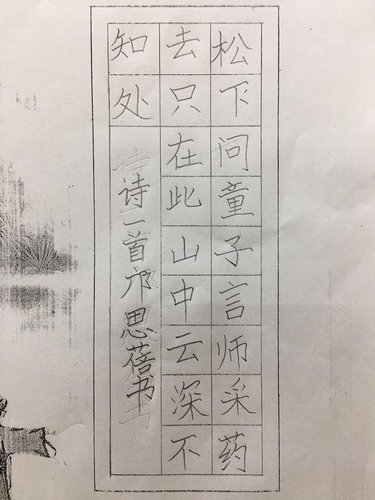 松下问童子言师采药
去只在此山中云深不
知处
诗一首邝思蓓书